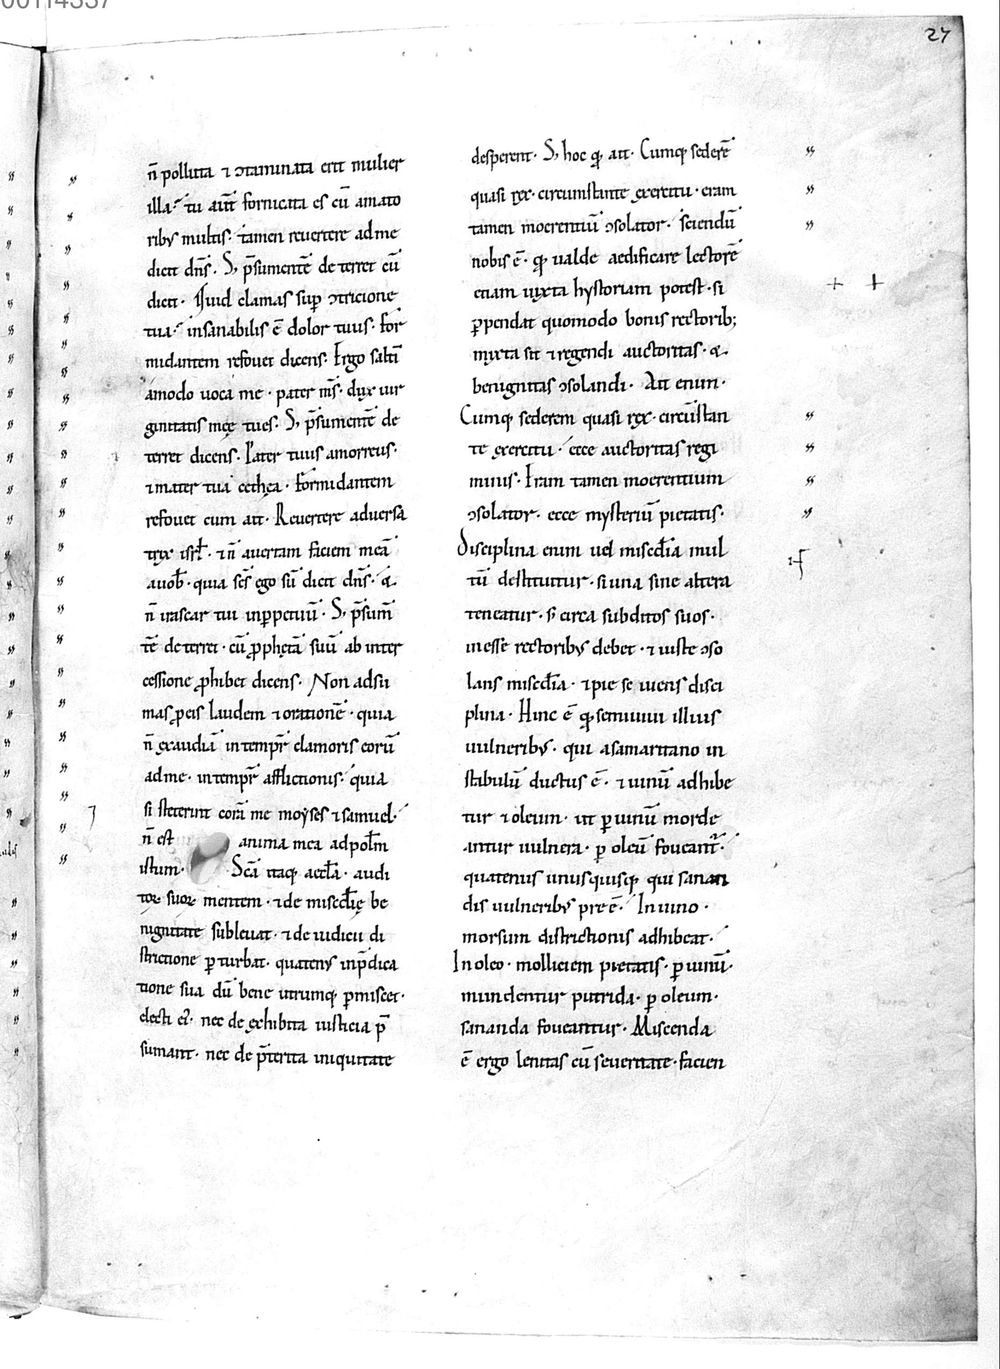 00114337
27
n̄ polluta ⁊ ↄtaminata erit mulier
illa? tu aut̄ fornicata es cū amato
ribꝰ multis· tamen reuertere ad me
dicit dn̄s· S, p̄sumentē deterret cū
dicit· Quid clamas suꝑ ↄtricione
tua? insanabilis ē dolor tuus· for
midantem refouet dicens· Ergo saltī
ámodo uoca me· pater m̄s· dux uir
ginitatis meę tu es· S, p̄sumentē de
terret dicens· Pater tuus amorreus·
⁊ mater tua cethea· formidantem
refouet cum ait· Reuertere aduersa
trix isrł· ⁊ n̄ auertam faciem meā
a uob̄· quia sc̄s ego sū dicit dn̄s· &
n̄ irascar tui inꝑpetuū· S, p̄sum̄
tē deterret· cū ꝓphetā suū ab inter
cessione ꝓhibet dicens· Non adsu
mas ꝓ eis laudem ⁊ orationē· quia
n̄ exaudiā in tempr̄ clamoris eorū
ad me· in tempr̄ afflictionis· quia
si steterint corā me moyses ⁊ samuel·
n̄ est anima mea ad pop̄lm
istum· Scā itaq; aeccła· audi
torꝝ suorꝝ mentem· ⁊ de miscd̄ię be
nignitate subleuat· ⁊ de iudicii di
strictione ꝑturbat· quatenꝰ in p̄dica
tione sua dū bene utrumq; ꝑmiscet·
electi ei᾽· nec de exhibita iusticia p̄
sumant· nec de p̄terita iniquitate
desperent· S, hoc qđ ait· Cumq; sederē
quasi rex· circumstante exercitu· eram
tamen moerentiū ↄsolator· sciendū
nobis ē· qđ ualde aedificare lectorē
etiam iuxta hystoriam potest· si
ꝑpendat quomodo bonis rectorib;
mixta sit ⁊ regendi auctoritas· &
benignitas ↄsolandi· Ait enim·
Cumq; sederem quasi rex· circūstan
te exercitu· ecce auctoritas regi
minis· Eram tamen moerentium
ↄsolator· ecce mysteriū pietatis·
Disciplina enim uel miscd̄ia mul
tū destituitur· si una sine altera
teneatur· s; circa subditos suos·
inesse rectoribꝰ debet· ⁊ iuste ↄso
lans miscd̄ia· ⁊ pie seuiens disci
plina· Hinc ē qđ semiuiui illius
uulneribꝰ· qui a samaritano in
stabulū ductus ē· ⁊ uinū adhibe
tur ⁊ oleum· ut ꝑ uinū morde
antur uulnera· ꝑ oleū foueant᷑·
quatenus unusquisq; qui sanan
dis uulneribꝰ preē· In uino·
morsum districtionis adhibeat·
In oleo· molliciem pietatis· ꝑ uinū·
mundentur putrida· ꝑ oleum·
sananda foueantur· Miscenda
ē ergo lenitas cū seueritate· facien